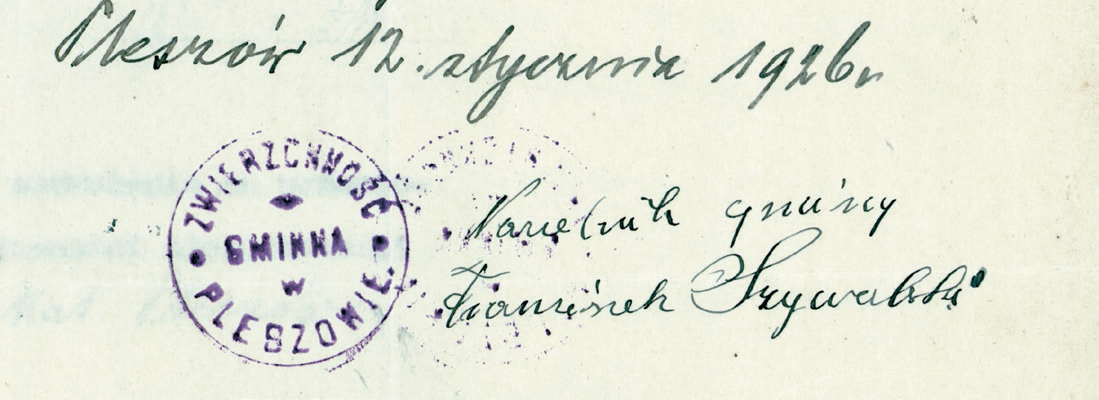 Pleszów 12. stycznia 1926r.
ZWIERZCHNOŚĆ
GMINNA
w
PLESZOWIE.
Naczelnik gminy
Franciszek Szywalski